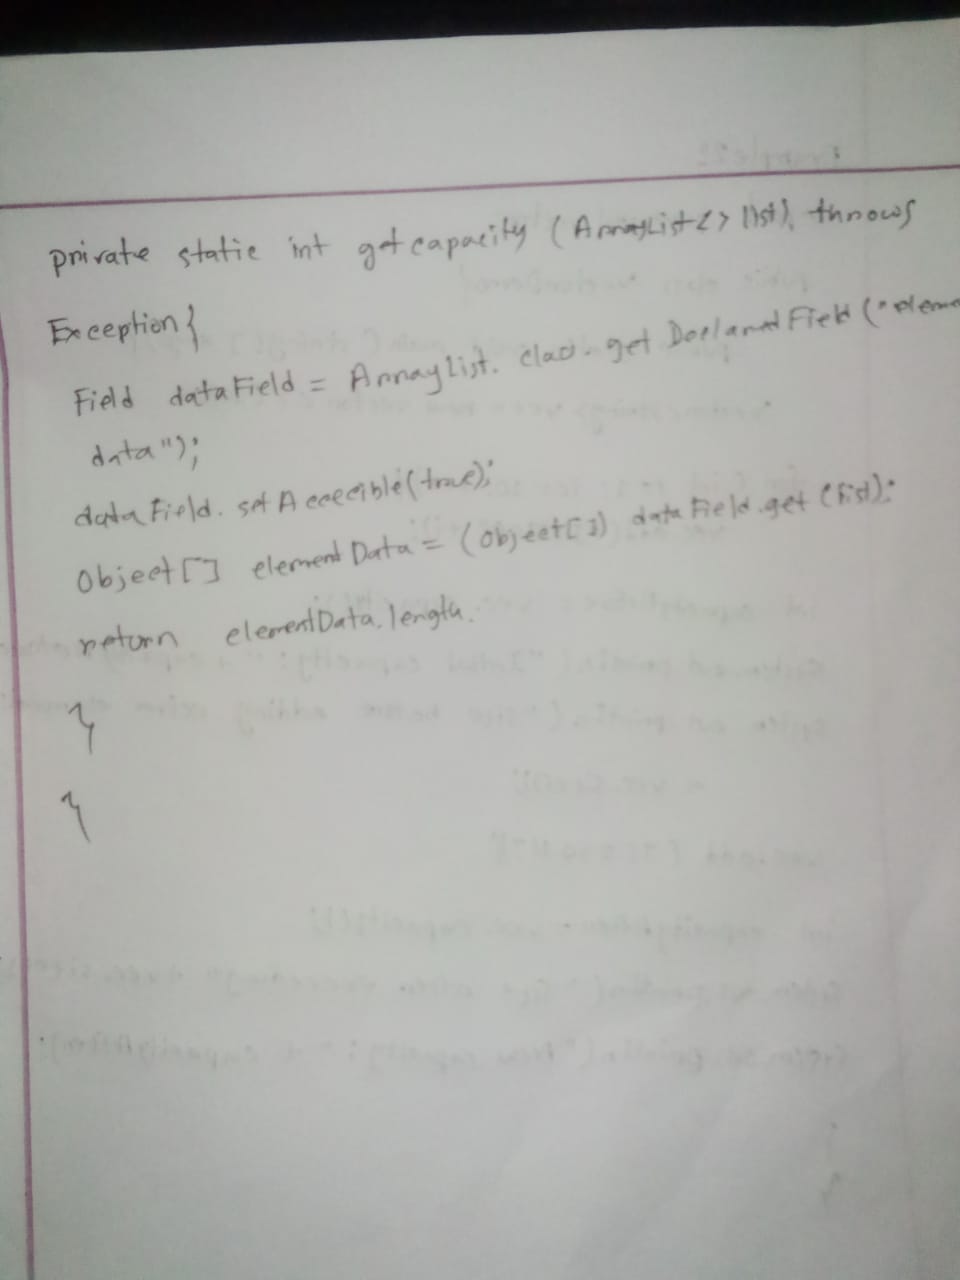 private static int getcapacity (ArrayList<> list) throws
Exception{
Field dataField = ArrayList. class. get Declared Field ("eleme
data");
dataField. set Accecible(true);
Object[] element Data = (Object[]) data Field.get (list);
return elementData.length.
}
}